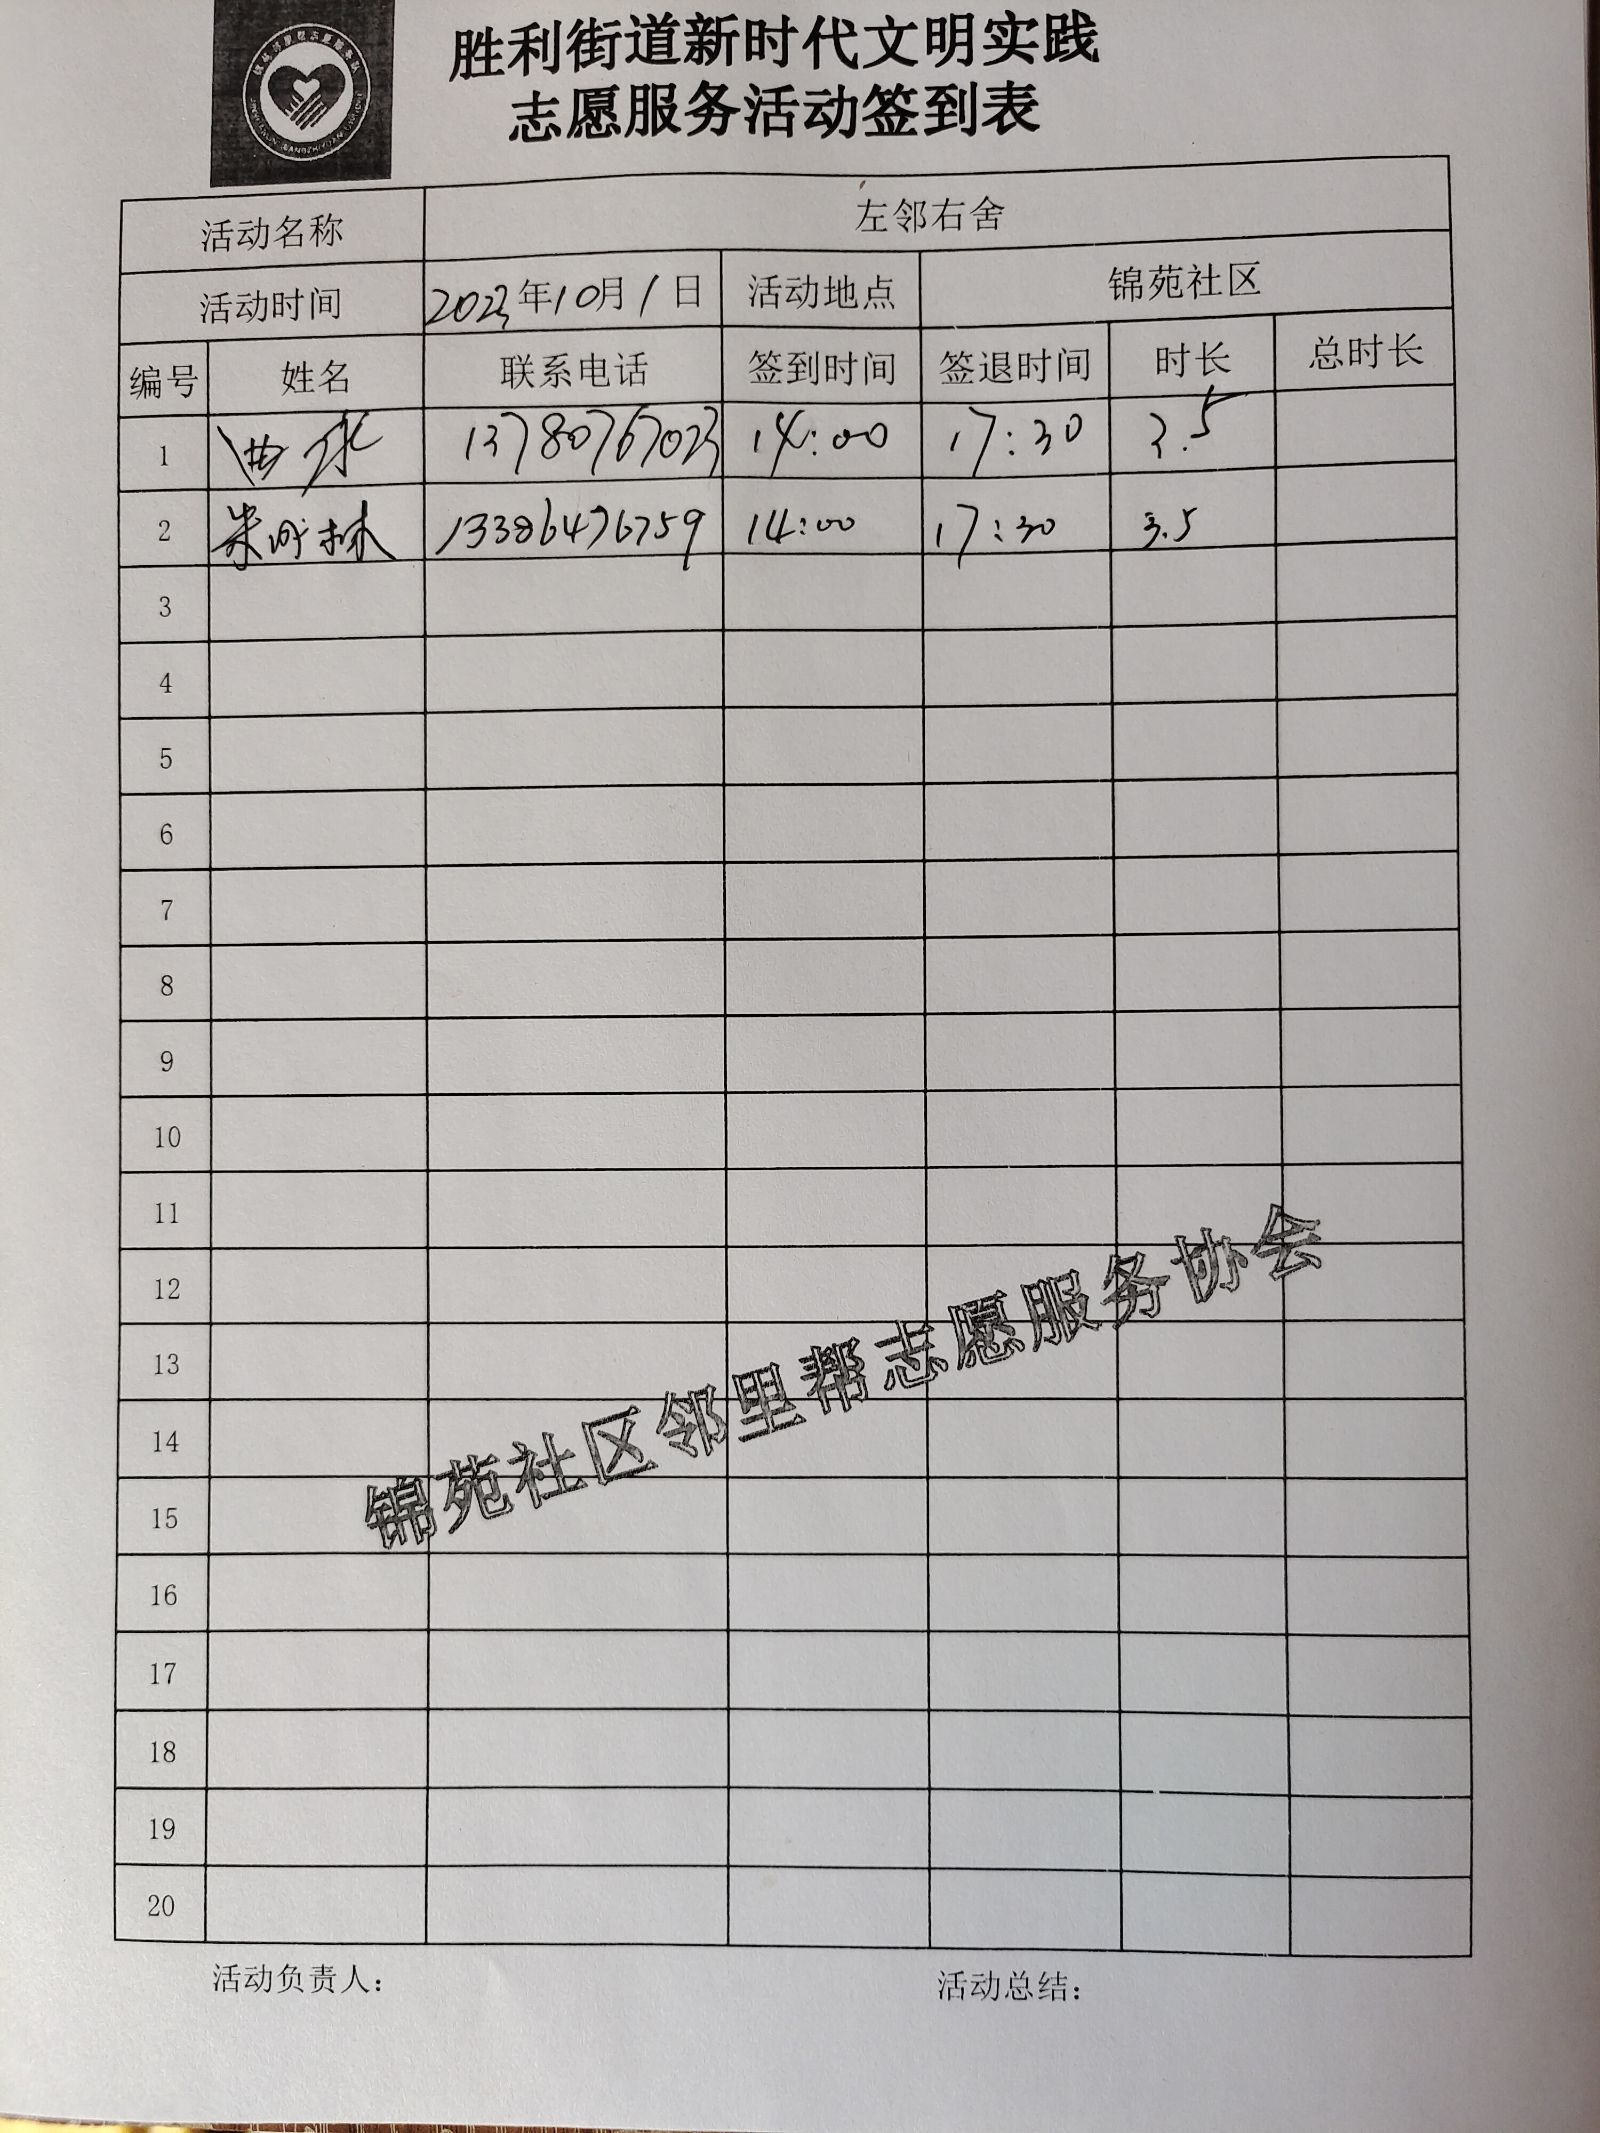 胜利街道新时代文明实践
志愿服务活动签到表
活动名称 左邻右舍
活动时间 2023年10月1日 活动地点 锦苑社区
编号 姓名 联系电话 签到时间 签退时间 时长 总时长
1 13780767023 14:00 17:30 3.5
2 林 13386476759 14:00 17:30 3.5
3
4
5
6
7
8
9
10
11
12
13
14
15
16
17
18
19
20
锦苑社区邻里帮志愿服务协会
活动负责人： 活动总结：